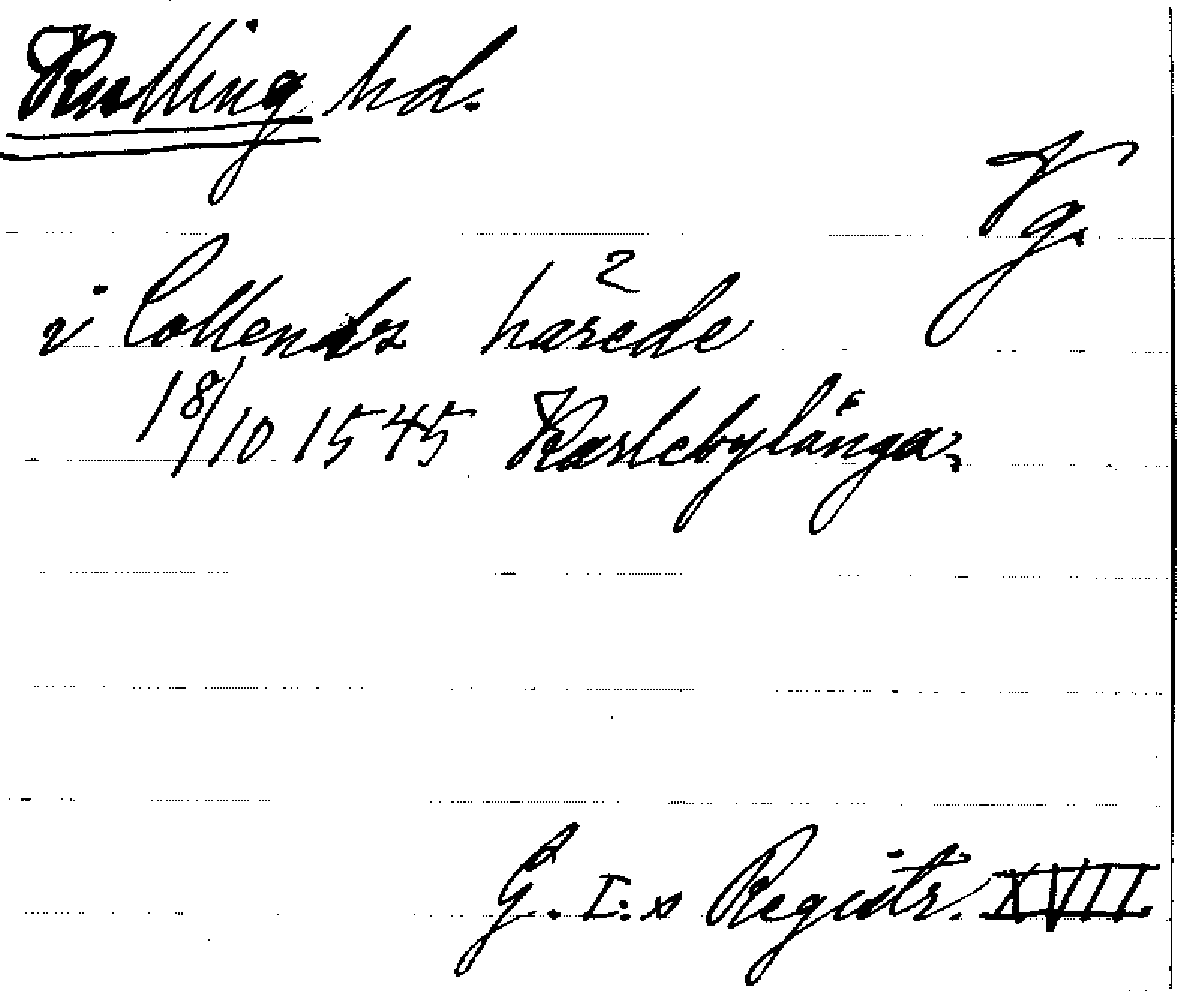 Kulling hd.
Vg.
i Collendz harede
18/10 1545 Karlebylånga.
G. I:s Registr. XVII